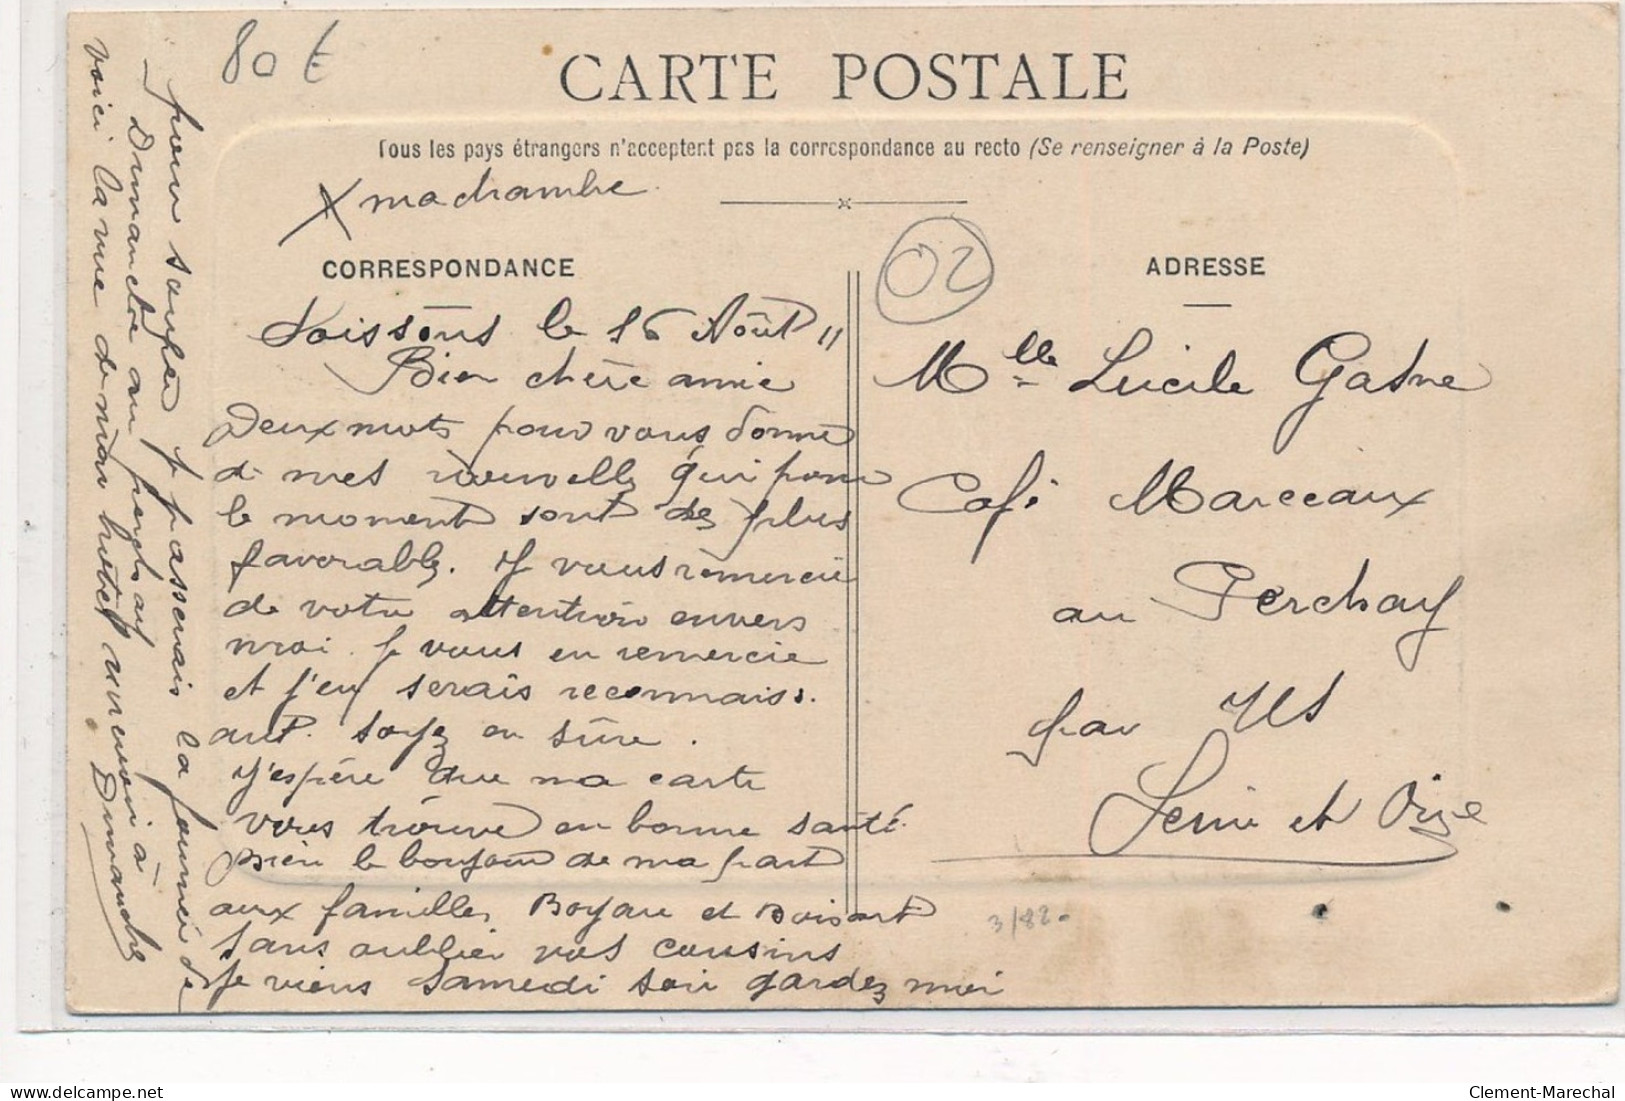 80 €
CARTE POSTALE
Tous les pays étrangers n'acceptent pas la correspondance au recto (Se renseigner à la Poste)
X ma chambre
CORRESPONDANCE
Soissons le 16 Août 11
Bien chère amie
Deux mots pour vous donné
de mes nouvelles qui pour
le moment sont des plus
favorables. Je vous remercie
de votre attention envers
moi. Je vous en remercie
et j'en serais reconnaiss.
ant. Soyez en sûre.
J'espère que ma carte
vous trouve en bonne santé.
bien le bonjour de ma part
aux familles Boyau et Boisart
Sans oublier vos cousins
Je viens Samedi soir gardez moi
pour souper je passerais la journée de
Dimanche au Perchay
voici la vue de mon hôtel
à Dimanche
02
ADRESSE
Mlle Lucile Gasne
Café Marceaux
au Perchay
par Us
Seine et Oise
3/82
delcampe.net
Clement-Marechal